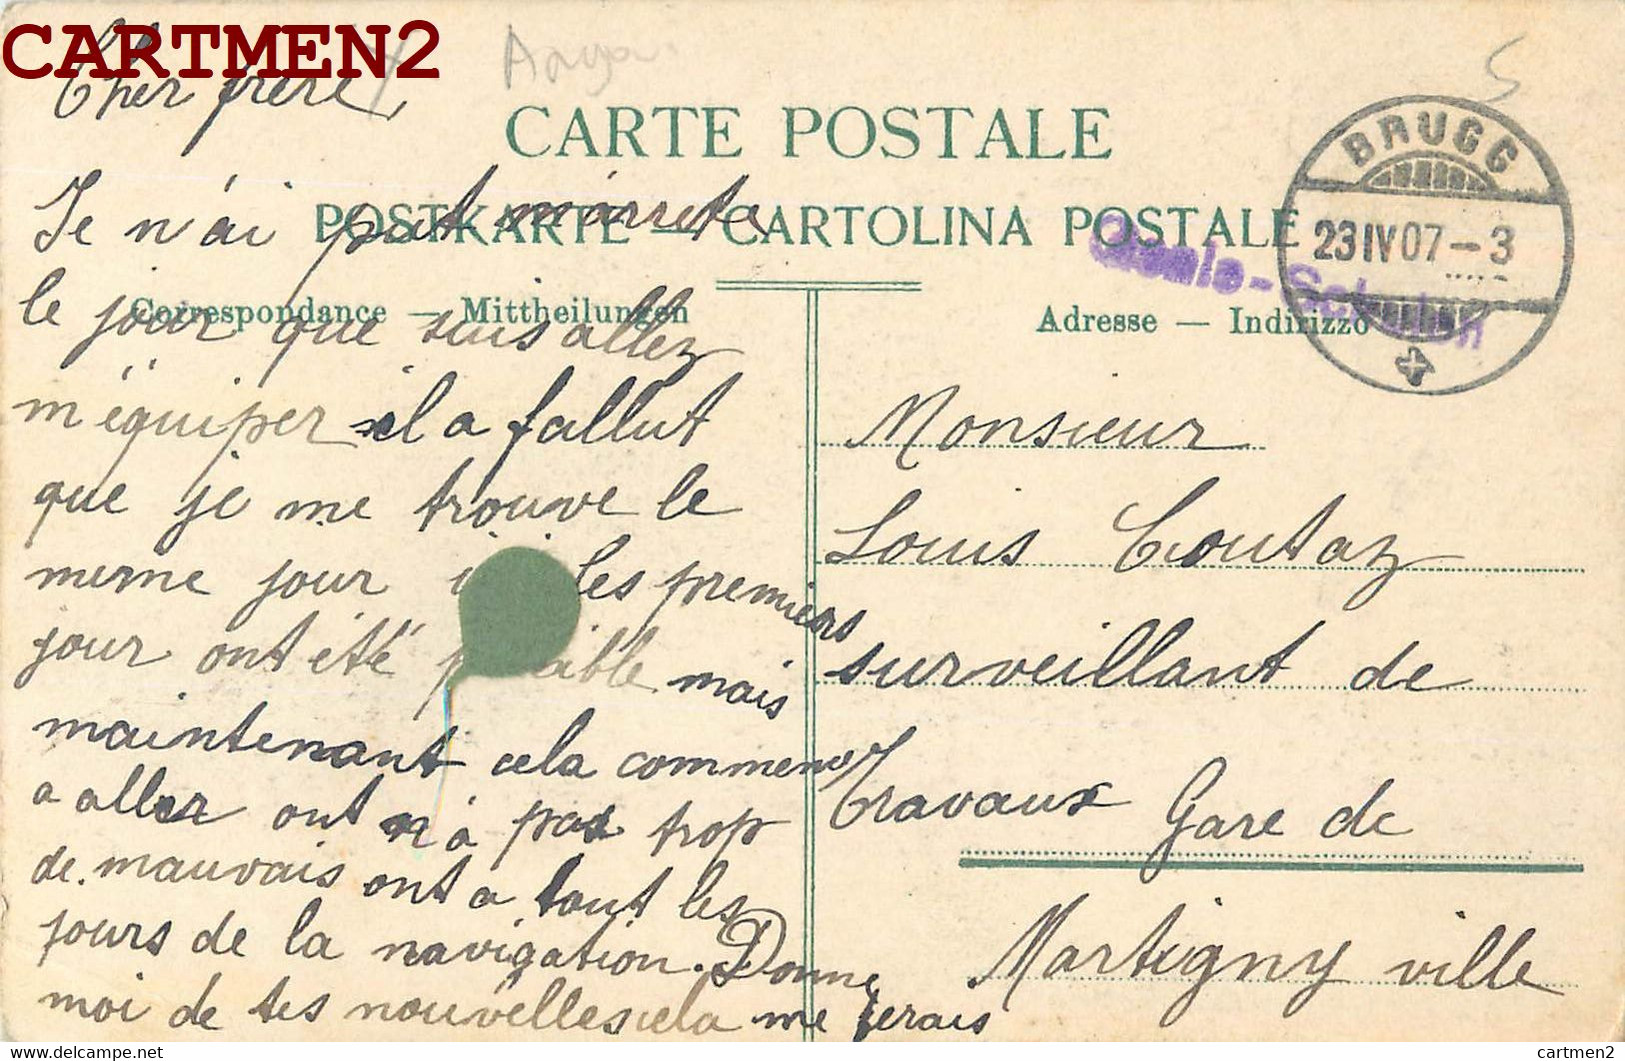 CARTMEN2
Cher frère,
CARTE POSTALE
POSTKARTE — CARTOLINA POSTALE
BRUGG
23 IV 07 – 3
5
Correspondance — Mittheilungen
Adresse — Indirizzo
Je n'ai put m'arreta
le jour que suis allez
m'équiper il a fallut
que je me trouve le
meme jour les premiers
jour ont été mais
maintenant cela commence
a aller ont n'a pas trop
de mauvais ont a tout les
jours de la navigation. Donne
moi de tes nouvelles cela me ferais
Monsieur
Louis Coutaz
surveillant de
Travaux Gare de
Martigny ville
delcampe.net
cartmen2